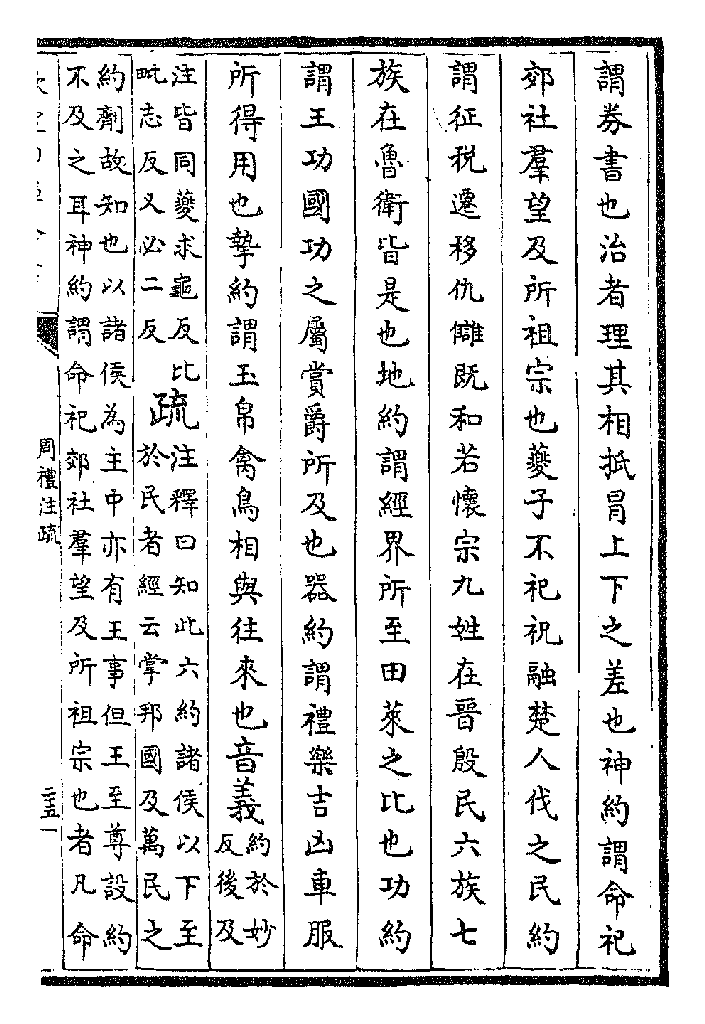 謂券書也治者理其相抵冒上下之差也神約謂命祀
郊社羣望及所祖宗也夔子不祀祝融楚人伐之民約
謂征稅遷移仇讎既和若懷宗九姓在晉殷民六族七
族在魯衛皆是也地約謂經界所至田萊之比也功約
謂王功國功之屬賞爵所及也器約謂禮樂吉凶車服
所得用也摯約謂玉帛禽鳥相與往來也音義
約於妙
反後及
注皆同夔求龜反比
毗志反又必二反
疏
注釋曰知此六約諸侯以下至
於民者經云掌邦國及萬民之
約劑故知也以諸侯為主中亦有王事但王至尊設約
不及之耳神約謂命祀郊社羣望及所祖宗也者凡命
周禮注疏